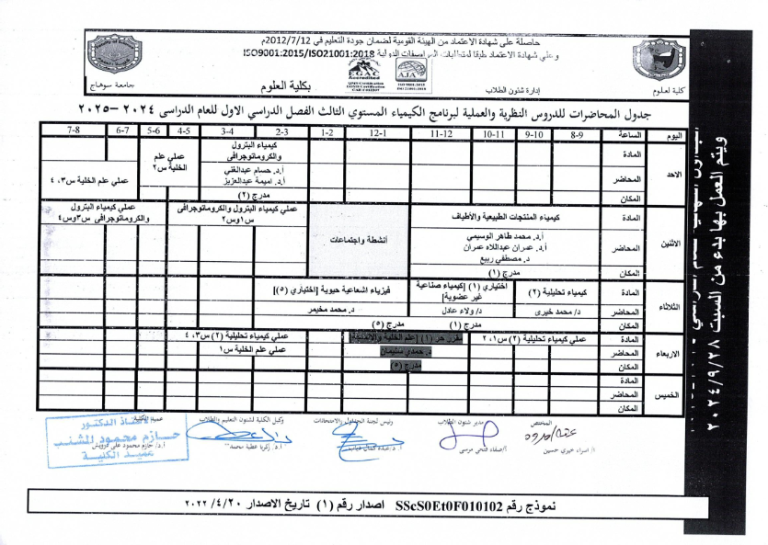 حاصلة على شهادة الاعتماد من الهيئة القومية لضمان جودة التعليم في 2012/7/12م
وعلى شهادة الاعتماد طبقا لمتطلبات المواصفات الدولية ISO9001:2015/ISO21001:2018
EGAC
AJA
جامعة سوهاج
بكلية العلوم
إدارة شئون الطلاب
كلية العلوم
جدول المحاضرات للدروس النظرية والعملية لبرنامج الكيمياء المستوي الثالث الفصل الدراسي الاول للعام الدراسى ٢٠٢٤ – ٢٠٢٥
اليوم الساعة 8-9 9-10 10-11 11-12 12-1 1-2 2-3 3-4 4-5 5-6 6-7 7-8
الاحد
المادة
كيمياء البترول والكروماتوجرافى
عملي علم الخلية س٢
عملي علم الخلية س٣، ٤
المحاضر
أ.د. حسام عبدالغني
أ.د. اميمة عبدالعزيز
المكان
مدرج (٢)
الاثنين
المادة
كيمياء المنتجات الطبيعية والأطياف
أنشطة واجتماعات
عملي كيمياء البترول والكروماتوجرافى س١و٢
عملي كيمياء البترول والكروماتوجرافى س٣و٤
المحاضر
أ.د. محمد طاهر الوسيمى
أ.د. عمران عبداللاه عمران
د. مصطفي ربيع
المكان
مدرج (١)
الثلاثاء
المادة
كيمياء تحليلية (٢)
اختياري (١) [كيمياء صناعية غير عضوية]
فيزياء اشعاعية حيوية [اختياري (٥)]
المحاضر
د/ محمد خيرى
د/ ولاء عادل
د. محمد مخيمر
المكان
مدرج (١)
مدرج (٥)
الاربعاء
المادة
عملي كيمياء تحليلية (٢) س١، ٢
مقرر حر (١) [علم الخلية والأنسجة]
عملي كيمياء تحليلية (٢) س٣، ٤
المحاضر
د. حمدي سليمان
عملي علم الخلية س١
المكان
مدرج (٥)
الخميس
المادة
المحاضر
المكان
ويتم العمل بها بدء من السبت ٢٠٢٤/٩/٢٨
المختص
مدير شئون الطلاب
رئيس لجنة الجداول والامتحانات
وكيل الكلية لشئون التعليم والطلاب
الأستاذ الدكتور
حازم محمود المشنب
عميد الكلية
نموذج رقم SScS0Et0F010102 اصدار رقم (١) تاريخ الاصدار ٢٠/٤/٢٠٢٢